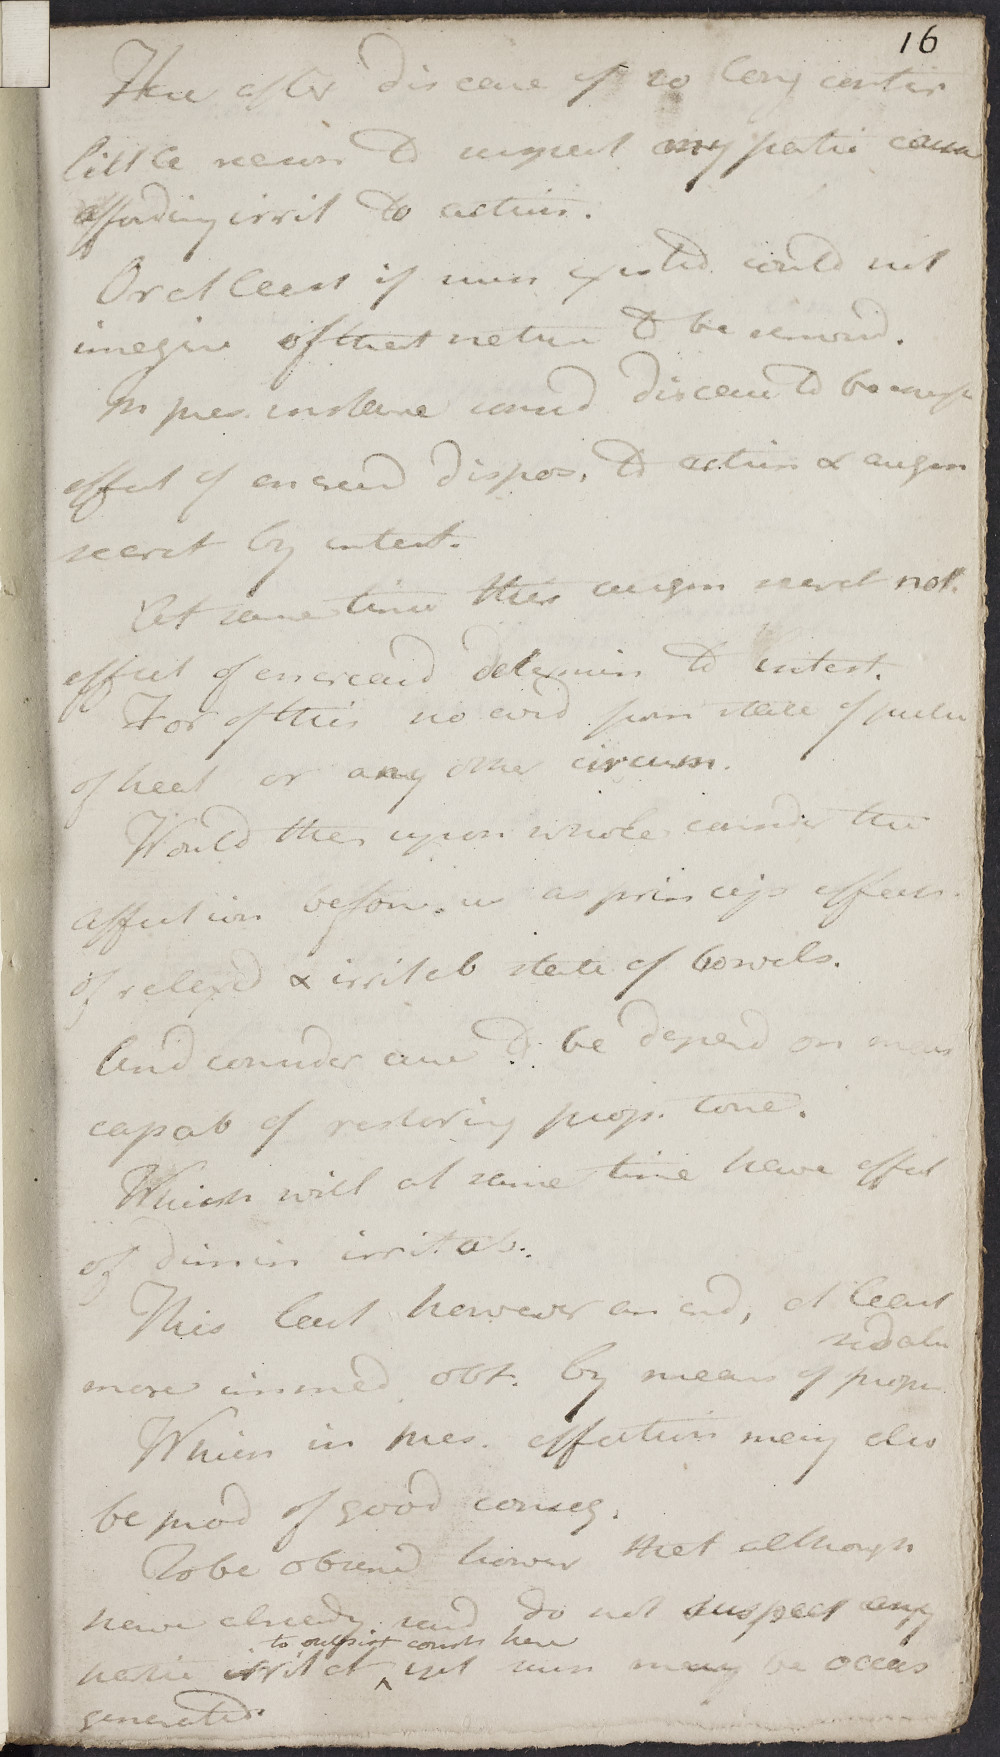 16
Here after disease of so long contin
little reason to suspect any partic cause
affording irrit to action.
Or at least if now existed could not
imagine of that nature to be remov'd.
In pres. instance consid disease to be
effect of encreas'd dispos. to action & augm
secret by intest.
At same time this augm secret not
effect of encreas'd determin to intest.
For of this no evid from state of pulse
of heat or any other circum.
Would then upon whole consider the
affection before us as princip effects
of relax'd & irritab state of bowels.
And consider cure to be depend on means
capab of restoring prop. tone.
Which will at same time have effect
of dimin irritab.
This last however an end, at least
more immed. obt. by means of proper
sedativ
Which in pres. affection may also
be prod of good conseq.
To be observd howev that although
have already said do not suspect any
to subsist const here
partic irrit at yet such may be occas
generated.